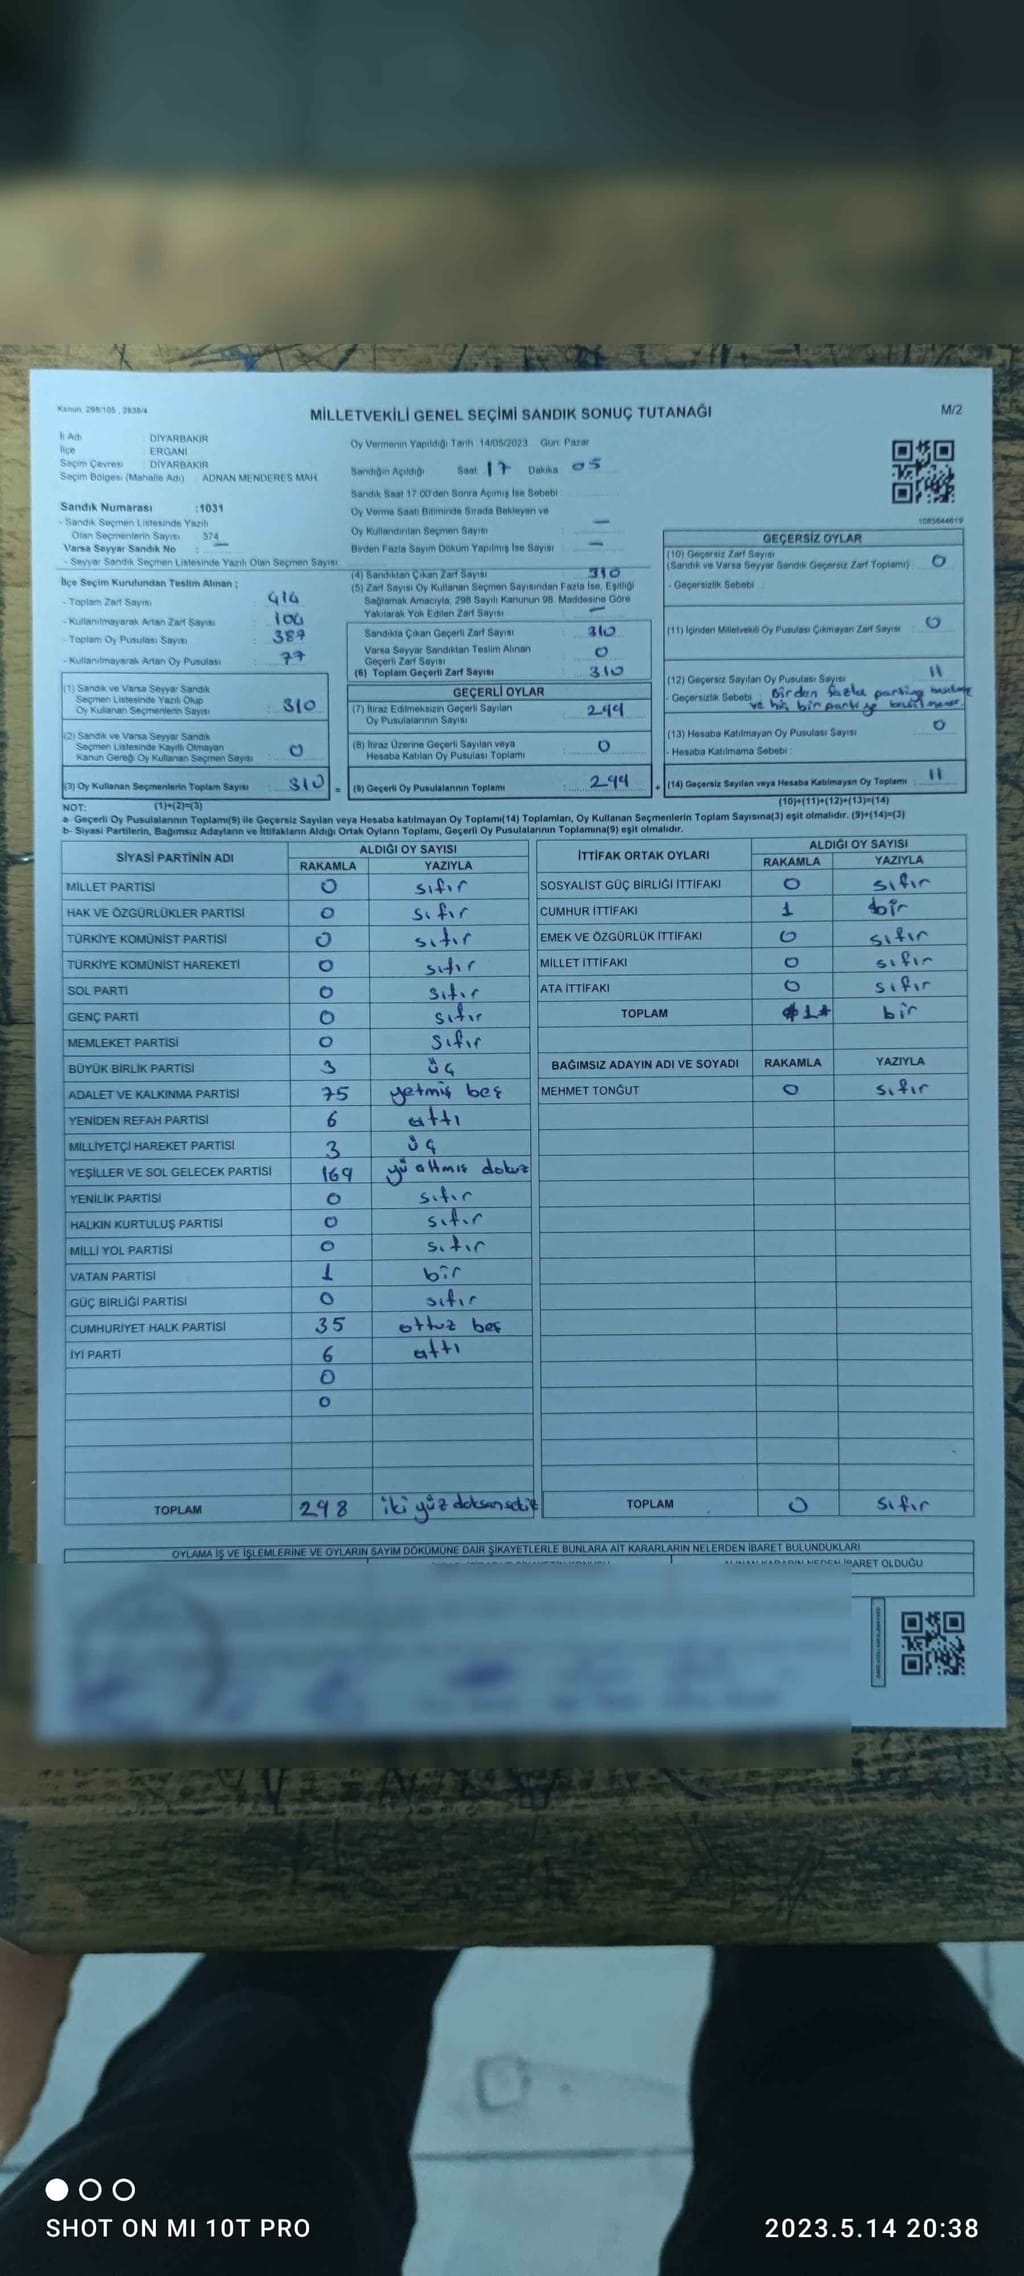 Kanun, 298/105 , 2839/4
MİLLETVEKİLİ GENEL SEÇİMİ SANDIK SONUÇ TUTANAĞI
M/2
İl Adı : DİYARBAKIR
İlçe : ERGANİ
Seçim Çevresi : DİYARBAKIR
Seçim Bölgesi (Mahalle Adı) : ADNAN MENDERES MAH.
Oy Vermenin Yapıldığı Tarih 14/05/2023 Gün: Pazar
Sandığın Açıldığı Saat 17 Dakika 05
Sandık Saat 17:00'den Sonra Açımış İse Sebebi :
Oy Verme Saati Bitiminde Sırada Bekleyen ve
Oy Kullandırılan Seçmen Sayısı : —
Birden Fazla Sayım Döküm Yapılmış İse Sayısı : —
Sandık Numarası :1031
- Sandık Seçmen Listesinde Yazılı
Olan Seçmenlerin Sayısı : 374
Varsa Seyyar Sandık No : —
- Seyyar Sandık Seçmen Listesinde Yazılı Olan Seçmen Sayısı:
İlçe Seçim Kurulundan Teslim Alınan ;
- Toplam Zarf Sayısı : 414
- Kullanılmayarak Artan Zarf Sayısı : 104
- Toplam Oy Pusulası Sayısı : 387
- Kullanılmayarak Artan Oy Pusulası : 77
(1) Sandık ve Varsa Seyyar Sandık
Seçmen Listesinde Yazılı Olup
Oy Kullanan Seçmenlerin Sayısı : 310
(2) Sandık ve Varsa Seyyar Sandık
Seçmen Listesinde Kayıtlı Olmayan
Kanun Gereği Oy Kullanan Seçmen Sayısı : 0
(3) Oy Kullanan Seçmenlerin Toplam Sayısı : 310 =
(4) Sandıktan Çıkan Zarf Sayısı : 310
(5) Zarf Sayısı Oy Kullanan Seçmen Sayısından Fazla İse, Eşitliği
Sağlamak Amacıyla; 298 Sayılı Kanunun 98. Maddesine Göre
Yakılarak Yok Edilen Zarf Sayısı : —
Sandıkta Çıkan Geçerli Zarf Sayısı : 310
Varsa Seyyar Sandıktan Teslim Alınan
Geçerli Zarf Sayısı : 0
(6) Toplam Geçerli Zarf Sayısı : 310
GEÇERLİ OYLAR
(7) İtiraz Edilmeksizin Geçerli Sayılan
Oy Pusulalarının Sayısı : 299
(8) İtiraz Üzerine Geçerli Sayılan veya
Hesaba Katılan Oy Pusulası Toplamı : 0
(9) Geçerli Oy Pusulalarının Toplamı : 299 +
1083644619
GEÇERSİZ OYLAR
(10) Geçersiz Zarf Sayısı
(Sandık ve Varsa Seyyar Sandık Geçersiz Zarf Toplamı) : 0
- Geçersizlik Sebebi :
(11) İçinden Milletvekili Oy Pusulası Çıkmayan Zarf Sayısı : 0
(12) Geçersiz Sayılan Oy Pusulası Sayısı : 11
- Geçersizlik Sebebi : Birden fazla partiye
ve hiç bir partiye
(13) Hesaba Katılmayan Oy Pusulası Sayısı : 0
- Hesaba Katılmama Sebebi :
(14) Geçersiz Sayılan veya Hesaba Katılmayan Oy Toplamı : 11
NOT: (1)+(2)=(3)
(10)+(11)+(12)+(13)=(14)
a- Geçerli Oy Pusulalarının Toplamı(9) ile Geçersiz Sayılan veya Hesaba katılmayan Oy Toplamı(14) Toplamları, Oy Kullanan Seçmenlerin Toplam Sayısına(3) eşit olmalıdır. (9)+(14)=(3)
b- Siyasi Partilerin, Bağımsız Adayların ve İttifakların Aldığı Ortak Oyların Toplamı, Geçerli Oy Pusulalarının Toplamına(9) eşit olmalıdır.
SİYASİ PARTİNİN ADI
ALDIĞI OY SAYISI
RAKAMLA YAZIYLA
MİLLET PARTİSİ 0 sıfır
HAK VE ÖZGÜRLÜKLER PARTİSİ 0 sıfır
TÜRKİYE KOMÜNİST PARTİSİ 0 sıfır
TÜRKİYE KOMÜNİST HAREKETİ 0 sıfır
SOL PARTİ 0 sıfır
GENÇ PARTİ 0 sıfır
MEMLEKET PARTİSİ 0 sıfır
BÜYÜK BİRLİK PARTİSİ 3 üç
ADALET VE KALKINMA PARTİSİ 75 yetmiş beş
YENİDEN REFAH PARTİSİ 6 altı
MİLLİYETÇİ HAREKET PARTİSİ 3 üç
YEŞİLLER VE SOL GELECEK PARTİSİ 169 yü altmış dokuz
YENİLİK PARTİSİ 0 sıfır
HALKIN KURTULUŞ PARTİSİ 0 sıfır
MİLLİ YOL PARTİSİ 0 sıfır
VATAN PARTİSİ 1 bir
GÜÇ BİRLİĞİ PARTİSİ 0 sıfır
CUMHURİYET HALK PARTİSİ 35 ottuz beş
İYİ PARTİ 6 altı
0
0
TOPLAM 298 iki yüz doksan sekiz
İTTİFAK ORTAK OYLARI
ALDIĞI OY SAYISI
RAKAMLA YAZIYLA
SOSYALİST GÜÇ BİRLİĞİ İTTİFAKI 0 sıfır
CUMHUR İTTİFAKI 1 bir
EMEK VE ÖZGÜRLÜK İTTİFAKI 0 sıfır
MİLLET İTTİFAKI 0 sıfır
ATA İTTİFAKI 0 sıfır
TOPLAM 1 bir
BAĞIMSIZ ADAYIN ADI VE SOYADI RAKAMLA YAZIYLA
MEHMET TONĞUT 0 sıfır
TOPLAM 0 sıfır
OYLAMA İŞ VE İŞLEMLERİNE VE OYLARIN SAYIM DÖKÜMÜNE DAİR ŞİKAYETLERLE BUNLARA AİT KARARLARIN NELERDEN İBARET BULUNDUKLARI
İBARET OLDUĞU
SHOT ON MI 10T PRO
2023.5.14 20:38